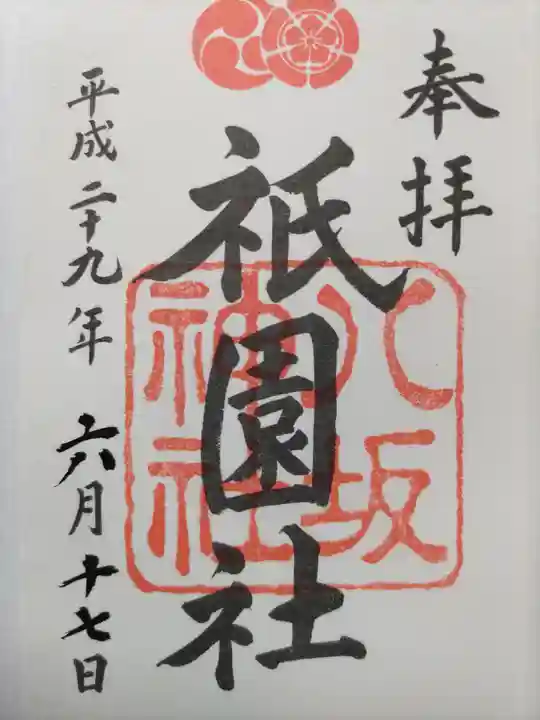 奉拝
祇園社
八坂
神社
平成二十九年 六月十七日